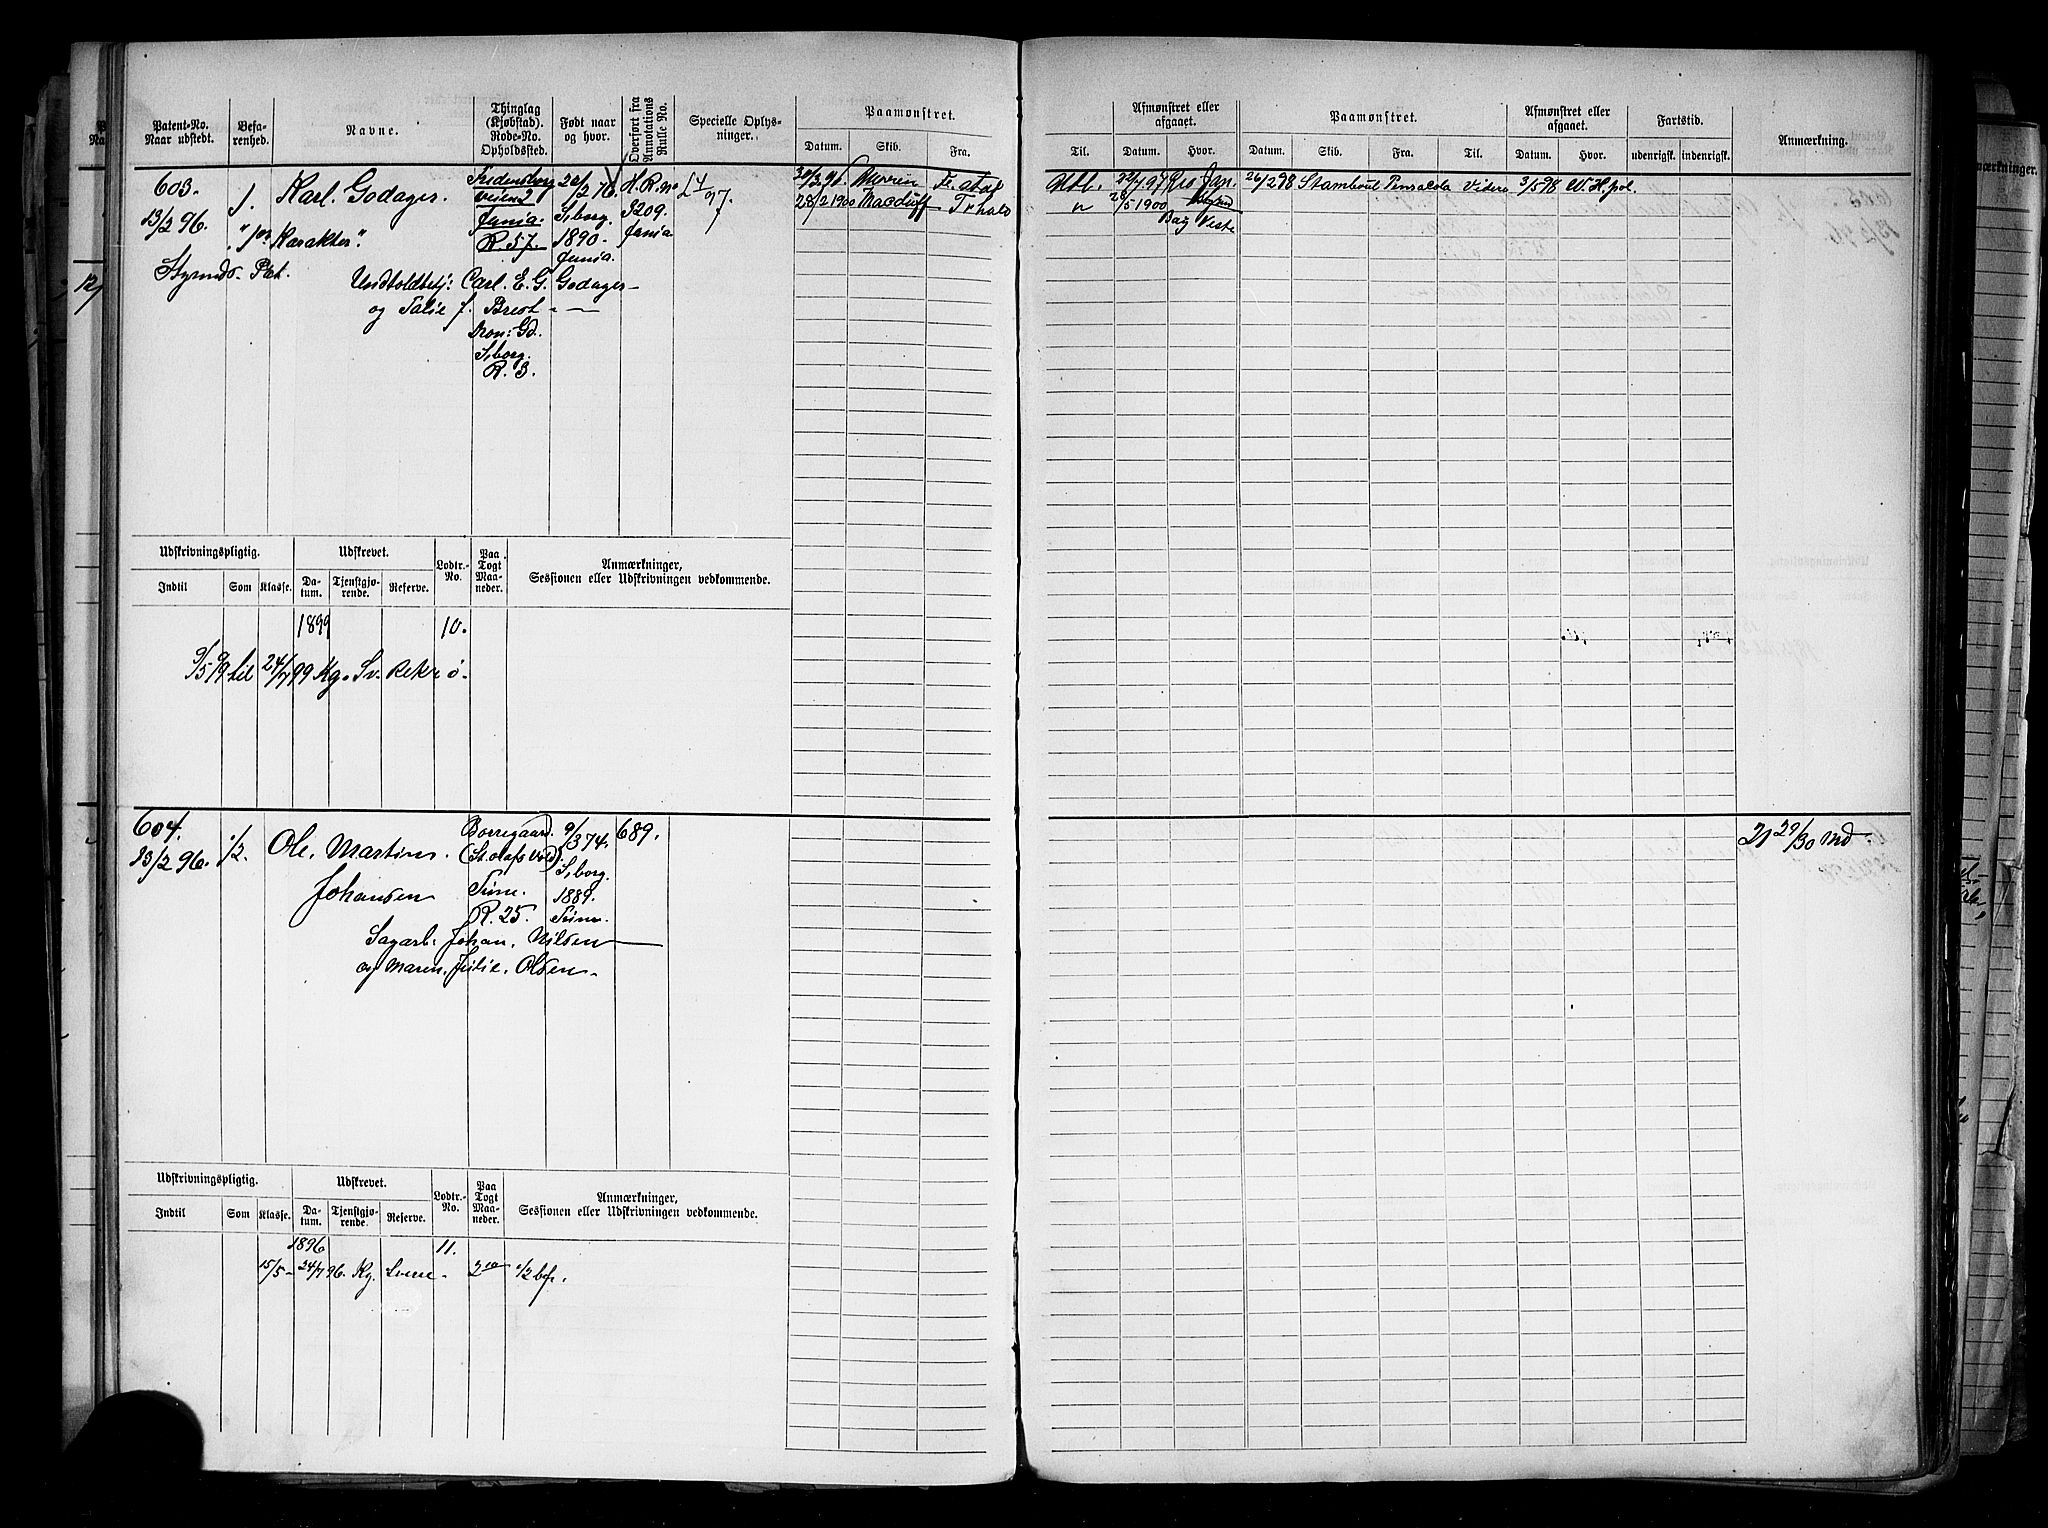 Patent-No. Naar udstedt.
Befarenhed.
Navne.
Thinglag (Kjøbstad). Rode-No. Opholdssted.
Født naar og hvor.
Overført fra Annotations Rulle No.
Specielle Oplysninger.
Paamønstret.
Datum. Skib. Fra.
Til.
Afmønstret eller afgaaet.
Datum. Hvor.
Paamønstret.
Datum. Skib. Fra. Til.
Afmønstret eller afgaaet.
Datum. Hvor.
Fartstid.
udenrigsk. indenrigsk.
Anmærkning.
603.
13/2 96.
1.
Karl. Godager.
"1ste Karakter".
Styrmds- Pat.
Fredensborg
veien 2
R. 57.
S,borg.
1890.
H. R. No
3209.
L 4/97.
Undholdbetj: Carl. E. G. Godager
og Talie f. Brest
S,borg.
R. 3.
28/2 1900 Macduff Fr hald
Udl. Rio Jan.
" 28/5 1900
Bay Veste
26/2 98 Stamboul Pensacola Videre 3/5 98 W. H. pol.
Udskrivningspligtig.
Udskrevet.
Lodtr.-No.
Paa Togt Maaneder.
Anmærkninger,
Sessionen eller Udskrivningen vedkommende.
Indtil Som Klasse. Datum. Tjenstgjørende. Reserve.
1899 10.
24/7 99 Kg. Sv. Rekr
604.
13/2 96.
1/2.
Ole. Martin.
Johansen
Borregaard.
(St. olafs Vold).
Tune.
R. 25.
9/3 74.
S,borg.
1889.
Tune.
689.
Sagarb. Johan. Nilsen
og Maren. Julie. Olsen
21 29/30 Md
Udskrivningspligtig.
Udskrevet.
Lodtr.-No.
Paa Togt Maaneder.
Anmærkninger,
Sessionen eller Udskrivningen vedkommende.
Indtil Som Klasse. Datum. Tjenstgjørende. Reserve.
1896 11.
15/5 - 24/7 96. Kg. Sverre - 2 1/2 bef.